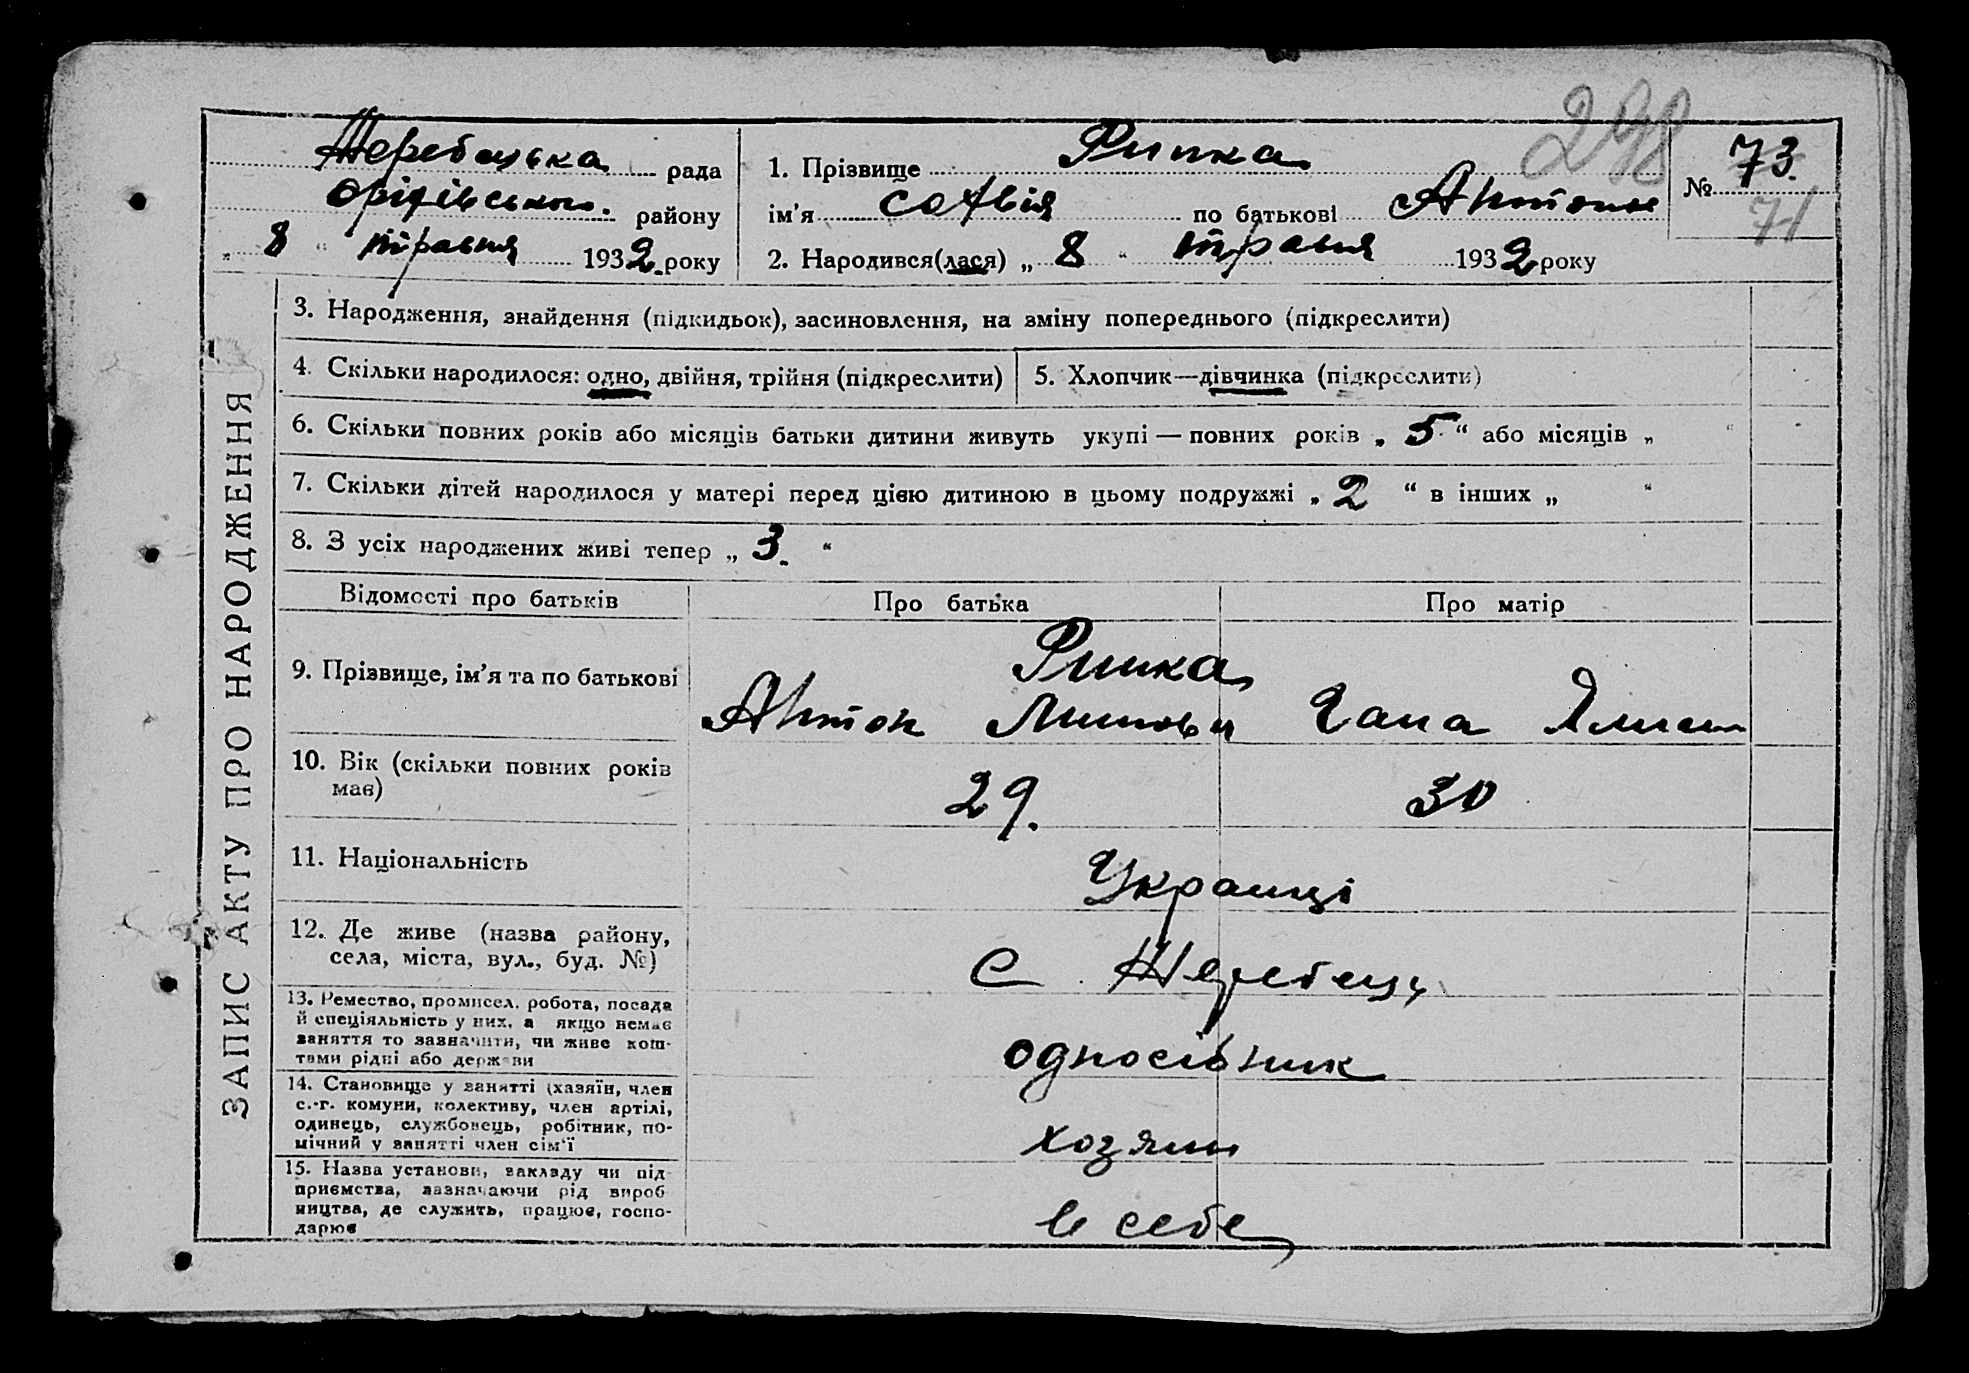 298
Жеребецька рада
Оріхівського району
„ 8 “ травня 1932 року
1. Прізвище Рипка
ім’я Софвія по батькові Антонов
2. Народився(лася) „ 8 “ травня 1932 року
№ 73.
71
ЗАПИС АКТУ ПРО НАРОДЖЕННЯ
3. Народження, знайдення (підкидьок), засиновлення, на зміну попереднього (підкреслити)
4. Скільки народилося: одно, двійня, трійня (підкреслити)
5. Хлопчик—дівчинка (підкреслити)
6. Скільки повних років або місяців батьки дитини живуть укупі — повних років „ 5 “ або місяців „ “
7. Скільки дітей народилося у матері перед цією дитиною в цьому подружжі „ 2 “ в інших „ “
8. З усіх народжених живі тепер „ 3. “
Відомості про батьків
Про батька
Про матір
9. Прізвище, ім’я та по батькові
Рипка
Антон Гана
10. Вік (скільки повних років
має)
29. 30
11. Національність
Українці
12. Де живе (назва району,
села, міста, вул., буд. №)
с. Жеребець
13. Ремество, промисел, робота, посада
й спеціяльність у них, а якщо немає
заняття то зазначити, чи живе кош-
тами рідні або держави
односібник
14. Становище у занятті (хазяїн, член
с.-г. комуни, колективу, член артілі,
одинець, службовець, робітник, по-
мічний у занятті член сім’ї
хозяин
15. Назва установи, закладу чи під-
приємства, зазначаючи рід вироб-
ництва, де служить, працює, госпо-
дарює
в себе